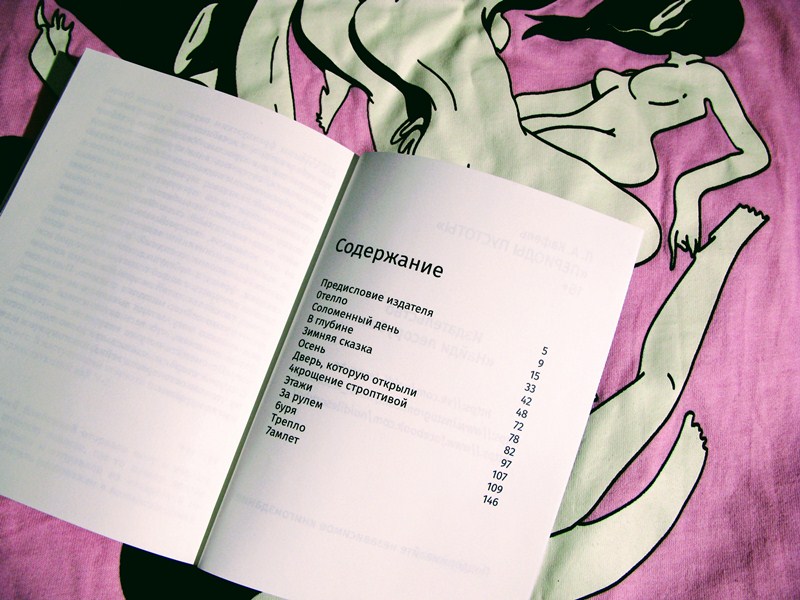 Содержание
Предисловие издателя 5
Отелло 9
Соломенный день 15
В глубине 33
Зимняя сказка 42
Осень 48
Дверь, которую открыли 72
4крощение строптивой 78
Этажи 82
За рулем 97
6уря 107
Трепло 109
7амлет 146